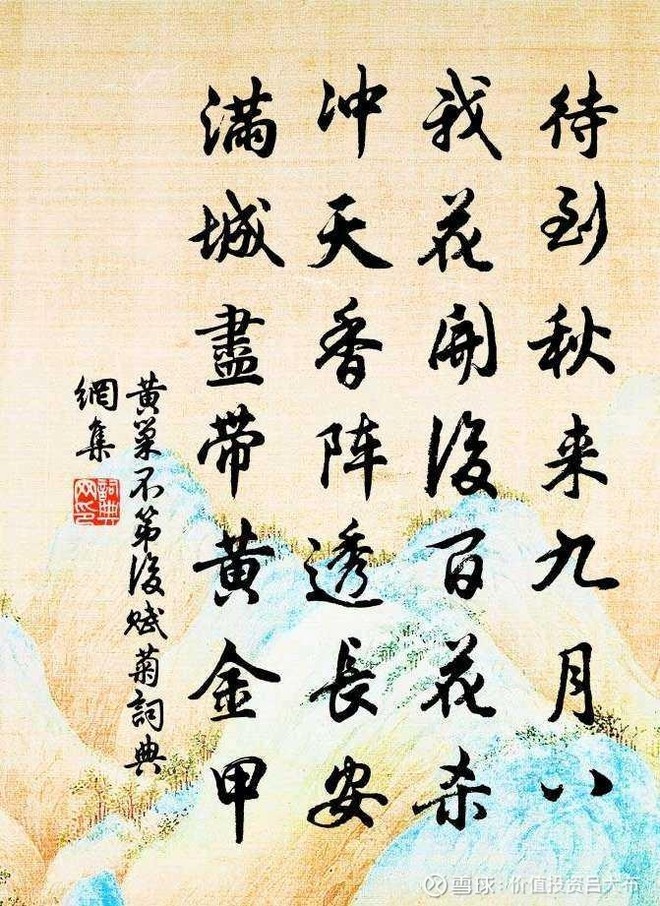 待到秋来九月八
我花開後百花杀
冲天香阵透長安
满城盡带黄金甲
黄巢不第後赋菊詞典
網集
詞典
网印
雪球：价值投资吕大布